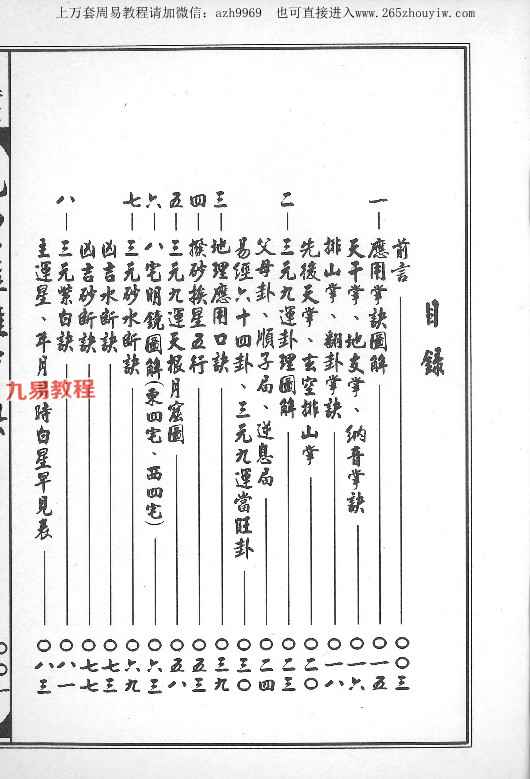 上万套周易教程请加微信：azh9969 也可直接进入www.265zhouyiw.com
目錄
前言 〇〇三
一－應用掌訣圖解 〇一五
天干掌、地支掌、納音掌訣 〇一六
排山掌、翻卦掌訣 〇一八
先後天掌、玄空排山掌 〇二〇
二－三元九運卦理圖解 〇二三
父母卦、順子局、逆息局 〇二四
易經六十四卦、三元九運當旺卦 〇三〇
三－地理應用口訣 〇三九
四－撥砂挨星五行 〇五三
五－三元九運天根月窟圖 〇五八
六－八宅明鏡圖解(東四宅、西四宅) 〇六三
七－三元砂水斷訣 〇六九
凶吉水斷訣 〇七三
凶吉砂斷訣 〇七七
八－三元紫白訣 〇八一
主運星、年月時白星早見表 〇八三
九易教程
〇〇一